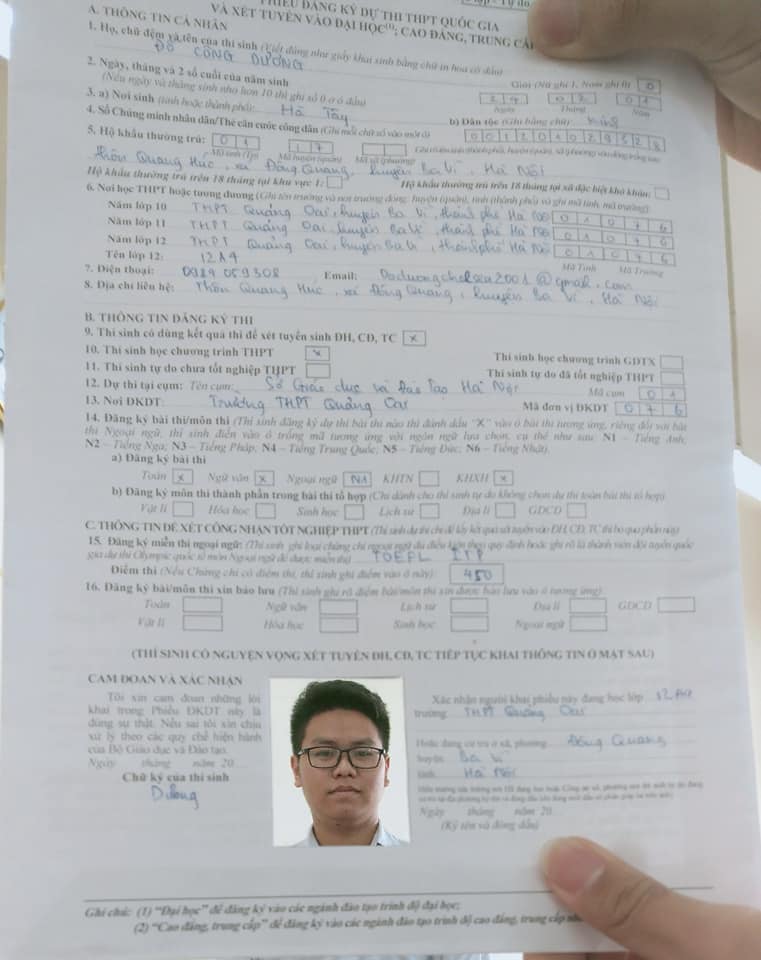 PHIẾU ĐĂNG KÝ DỰ THI THPT QUỐC GIA
VÀ XÉT TUYỂN VÀO ĐẠI HỌC(1); CAO ĐẲNG, TRUNG CẤP
A. THÔNG TIN CÁ NHÂN
1. Họ, chữ đệm và tên của thí sinh (Viết đúng như giấy khai sinh bằng chữ in hoa có dấu)
ĐỖ CÔNG DƯƠNG Giới (Nữ ghi 1, Nam ghi 0) 0
2. Ngày, tháng và 2 số cuối của năm sinh
(Nếu ngày và tháng sinh nhỏ hơn 10 thì ghi số 0 ở ô đầu) 24 02 01
Ngày Tháng Năm
3. a) Nơi sinh (tỉnh hoặc thành phố): Hà Tây b) Dân tộc (Ghi bằng chữ): Kinh
4. Số Chứng minh nhân dân/Thẻ căn cước công dân (Ghi mỗi chữ số vào một ô) 001201029528
5. Hộ khẩu thường trú: 01 17
Mã tỉnh (Tp) Mã huyện (quận) Mã xã (phường)
thôn Quang Húc, xã Đông Quang, huyện Ba Vì, Hà Nội
Hộ khẩu thường trú trên 18 tháng tại khu vực 1: Hộ khẩu thường trú trên 18 tháng tại xã đặc biệt khó khăn:
6. Nơi học THPT hoặc tương đương (Ghi tên trường và nơi trường đóng: huyện (quận), tỉnh (thành phố) và ghi mã tỉnh, mã trường):
Năm lớp 10 THPT Quảng Oai, huyện Ba Vì, thành phố Hà Nội 01 076
Năm lớp 11 THPT Quảng Oai, huyện Ba Vì, thành phố Hà Nội 01 076
Năm lớp 12 THPT Quảng Oai, huyện Ba Vì, thành phố Hà Nội 01 076
Tên lớp 12: 12A4 Mã Tỉnh Mã Trường
7. Điện thoại: 0989 059308 Email: Doduongchelsea2001@gmail.com
8. Địa chỉ liên hệ: Thôn Quang Húc, xã Đông Quang, huyện Ba Vì, Hà Nội
B. THÔNG TIN ĐĂNG KÝ THI
9. Thí sinh có dùng kết quả thi để xét tuyển sinh ĐH, CĐ, TC x
10. Thí sinh học chương trình THPT x Thí sinh học chương trình GDTX
11. Thí sinh tự do chưa tốt nghiệp THPT Thí sinh tự do đã tốt nghiệp THPT
12. Dự thi tại cụm: Tên cụm: Sở Giáo dục và Đào Tạo Hà Nội Mã cụm 01
13. Nơi ĐKDT: Trường THPT Quảng Oai Mã đơn vị ĐKDT 076
14. Đăng ký bài thi/môn thi (Thí sinh đăng ký dự thi bài thi nào thì đánh dấu "X" vào ô bài thi tương ứng, riêng đối với bài
thi Ngoại ngữ, thí sinh điền vào ô trống mã tương ứng với ngôn ngữ lựa chọn, cụ thể như sau: N1 – Tiếng Anh;
N2 – Tiếng Nga; N3 – Tiếng Pháp; N4 – Tiếng Trung Quốc; N5 – Tiếng Đức; N6 – Tiếng Nhật).
a) Đăng ký bài thi
Toán x Ngữ văn x Ngoại ngữ N1 KHTN KHXH x
b) Đăng ký môn thi thành phần trong bài thi tổ hợp (Chỉ dành cho thí sinh tự do không chọn dự thi toàn bài thi tổ hợp)
Vật lí Hóa học Sinh học Lịch sử Địa lí GDCD
C. THÔNG TIN ĐỂ XÉT CÔNG NHẬN TỐT NGHIỆP THPT (Thí sinh dự thi chỉ để lấy kết quả xét tuyển vào ĐH, CĐ, TC thì bỏ qua phần này)
15. Đăng ký miễn thi ngoại ngữ: (Thí sinh ghi loại chứng chỉ ngoại ngữ đủ điều kiện theo quy định hoặc ghi rõ là thành viên đội tuyển quốc
gia dự thi Olympic quốc tế môn Ngoại ngữ để được miễn thi) TOEFL ITP
Điểm thi (Nếu Chứng chỉ có điểm thi, thí sinh ghi điểm vào ô này): 450
16. Đăng ký bài/môn thi xin bảo lưu (Thí sinh ghi rõ điểm bài/môn thi xin được bảo lưu vào ô tương ứng):
Toán Ngữ văn Lịch sử Địa lí GDCD
Vật lí Hóa học Sinh học Ngoại ngữ
(THÍ SINH CÓ NGUYỆN VỌNG XÉT TUYỂN ĐH, CĐ, TC TIẾP TỤC KHAI THÔNG TIN Ở MẶT SAU)
CAM ĐOAN VÀ XÁC NHẬN
Tôi xin cam đoan những lời
khai trong Phiếu ĐKDT này là
đúng sự thật. Nếu sai tôi xin chịu
xử lý theo các quy chế hiện hành
của Bộ Giáo dục và Đào tạo.
Ngày tháng năm 20
Chữ ký của thí sinh
Dương
Xác nhận người khai phiếu này đang học lớp 12A4
trường THPT Quảng Oai
Hoặc đang cư trú ở xã, phường Đông Quang
huyện Ba Vì
tỉnh Hà Nội
Ngày tháng năm 20
(Ký tên và đóng dấu)
Ghi chú: (1) "Đại học" để đăng ký vào các ngành đào tạo trình độ đại học;
(2) "Cao đẳng, trung cấp" để đăng ký vào các ngành đào tạo trình độ cao đẳng, trung cấp